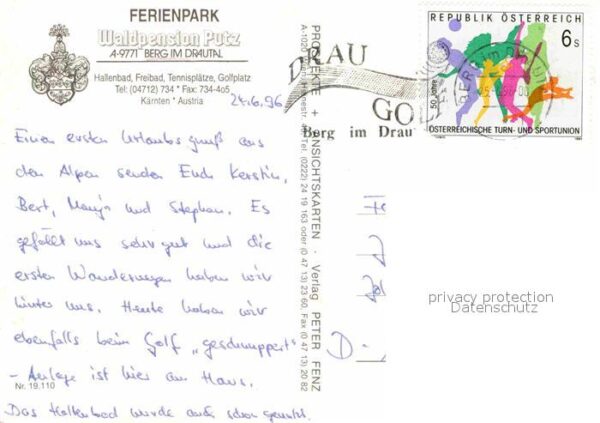 FERIENPARK
Waldpension Putz
A-9771 BERG IM DRAUTAL
Hallenbad, Freibad, Tennisplätze, Golfplatz
Tel: (04712) 734 * Fax: 734-4o5
Kärnten * Austria
24.6.96
Einen ersten Urlaubsgruß aus
den Alpen senden Euch Kerstin,
Bert, und Stephan. Es
gefällt uns sehr gut und die
ersten Wanderungen haben wir
hinter uns. Heute haben wir
ebenfalls beim Golf „geschnuppert"
- Anlage ist hier am Haus.
Nr. 19.110
Das Hallenbad wurde auch schon genutzt.
PROSPEKTE + ANSICHTSKARTEN · Verlag PETER FENZ
Tel. (0222) 24 19 163 oder (0 47 13) 23 60, Fax (0 47 13) 20 82
DRAU
GOLF
Berg im Drau
REPUBLIK ÖSTERREICH
6 S
50 Jahre
ÖSTERREICHISCHE TURN- UND SPORTUNION
D-
privacy protection
Datenschutz